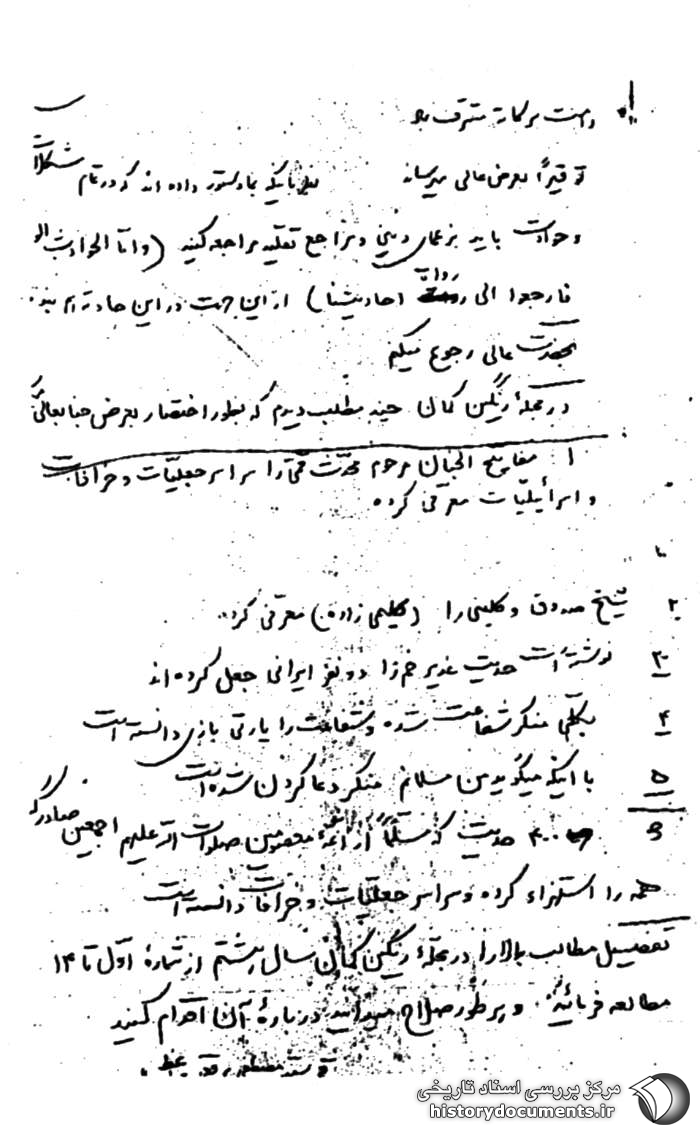 دامت برکاته مشرف باد
توقیراً بعرض عالی میرساند نظر باینکه بما دستور داده اند که در تمام مشکلات
و حوادث باید بزعمای دینی و مراجع تقلید مراجعه کنید (و اما الحوادث الو
فارجعوا الی رواة احادیثنا) از این جهت در این حادثه هم
بحضرت عالی رجوع میکنم
در مجلۀ رنگین کمان چند مطلب دیدم که بطور اختصار بعرض جنابعالی
۱ مفاتیح الجنان مرحوم محدث قمی را سراسر جعلیّات و خرافات
و اسرائیلیّات معرفی کرده
۲ شیخ صدوق و کلینی را (کلیمی زاده) معرفی کرده
۳ نوشته است حدیث غدیر خم را دو نفر ایرانی جعل کرده اند
۴ بکلّی منکر شفاعت شده و شفاعت را پارتی بازی دانسته است
۵ با اینکه میگوید من مسلمانم منکر دعا کردن شده است
و ۴۰۰ حدیث که مسلّماً از ائمۀ معصومین صلوات الله علیهم اجمعین صادر
همه را استهزاء کرده و سراسر جعلیّات و خرافات دانسته است
تفضیل مطالب بالا را در مجلۀ رنگین کمان سال هشتم از شمارۀ اول تا ۱۴
مطالعه فرمائید و هر طور صلاح میدانید دربارۀ آنها اقدام کنید
مرکز بررسی اسناد تاریخی
historydocuments.ir